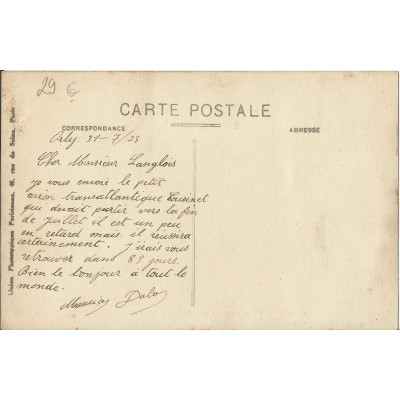 29 €
CARTE POSTALE
CORRESPONDANCE
ADRESSE
Orly 31-7/25
Cher Monsieur Langlois
je vous envoie le petit
avion transatlantique Tousinet
qui devait partir vers la fin
de juillet il est un peu
en retard mais il réussira
certainement. J'irais vous
retrouver dans 8 jours.
Bien le bonjour à tout le
monde.
Maurice
Union Photographique Parisienne, rue de Seine, Paris